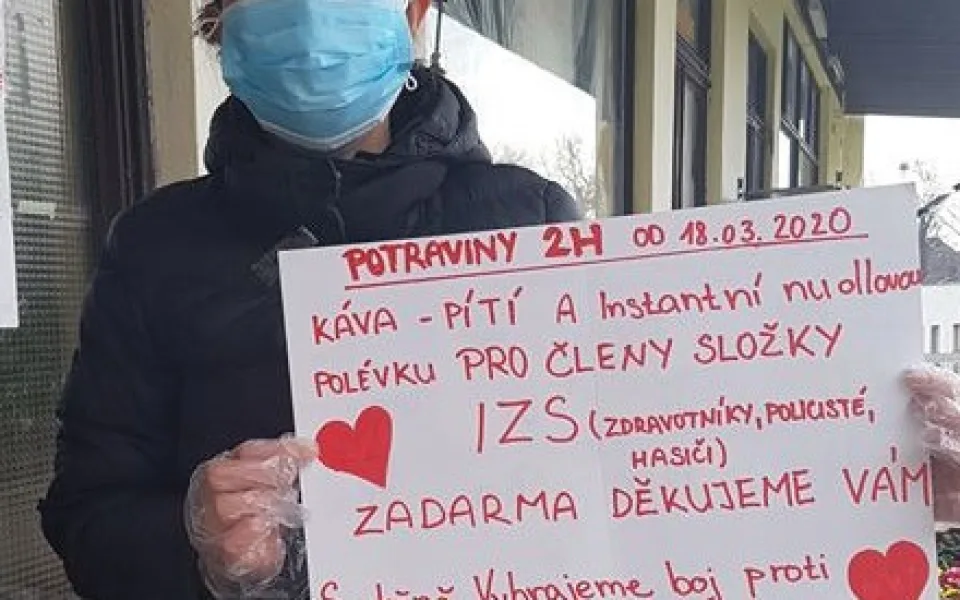 POTRAVINY 2H OD 18.03.2020
KÁVA - PÍTÍ A Instantní nudlovou
POLÉVKU PRO ČLENY SLOŽKY
IZS (ZDRAVOTNÍKY, POLICISTÉ,
HASIČI)
ZADARMA DĚKUJEME VÁM
Vyhrajeme boj proti